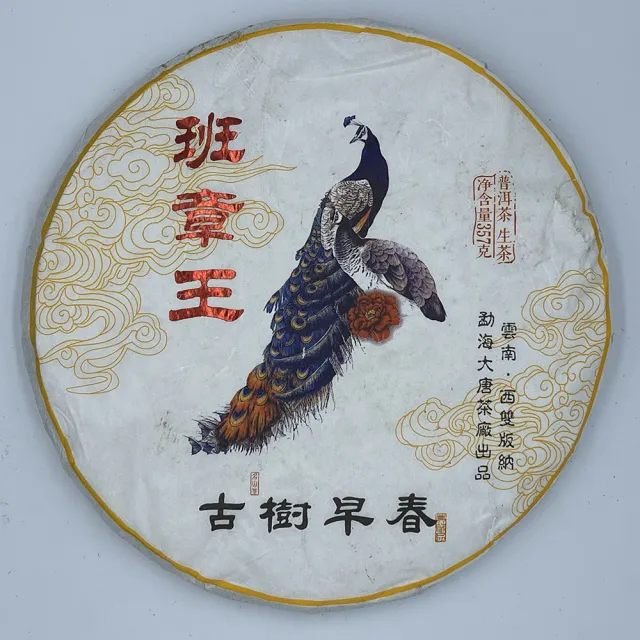 班章王
普洱茶 生茶
净含量357克
雲南·西雙版納
勐海大唐茶廠出品
古樹早春